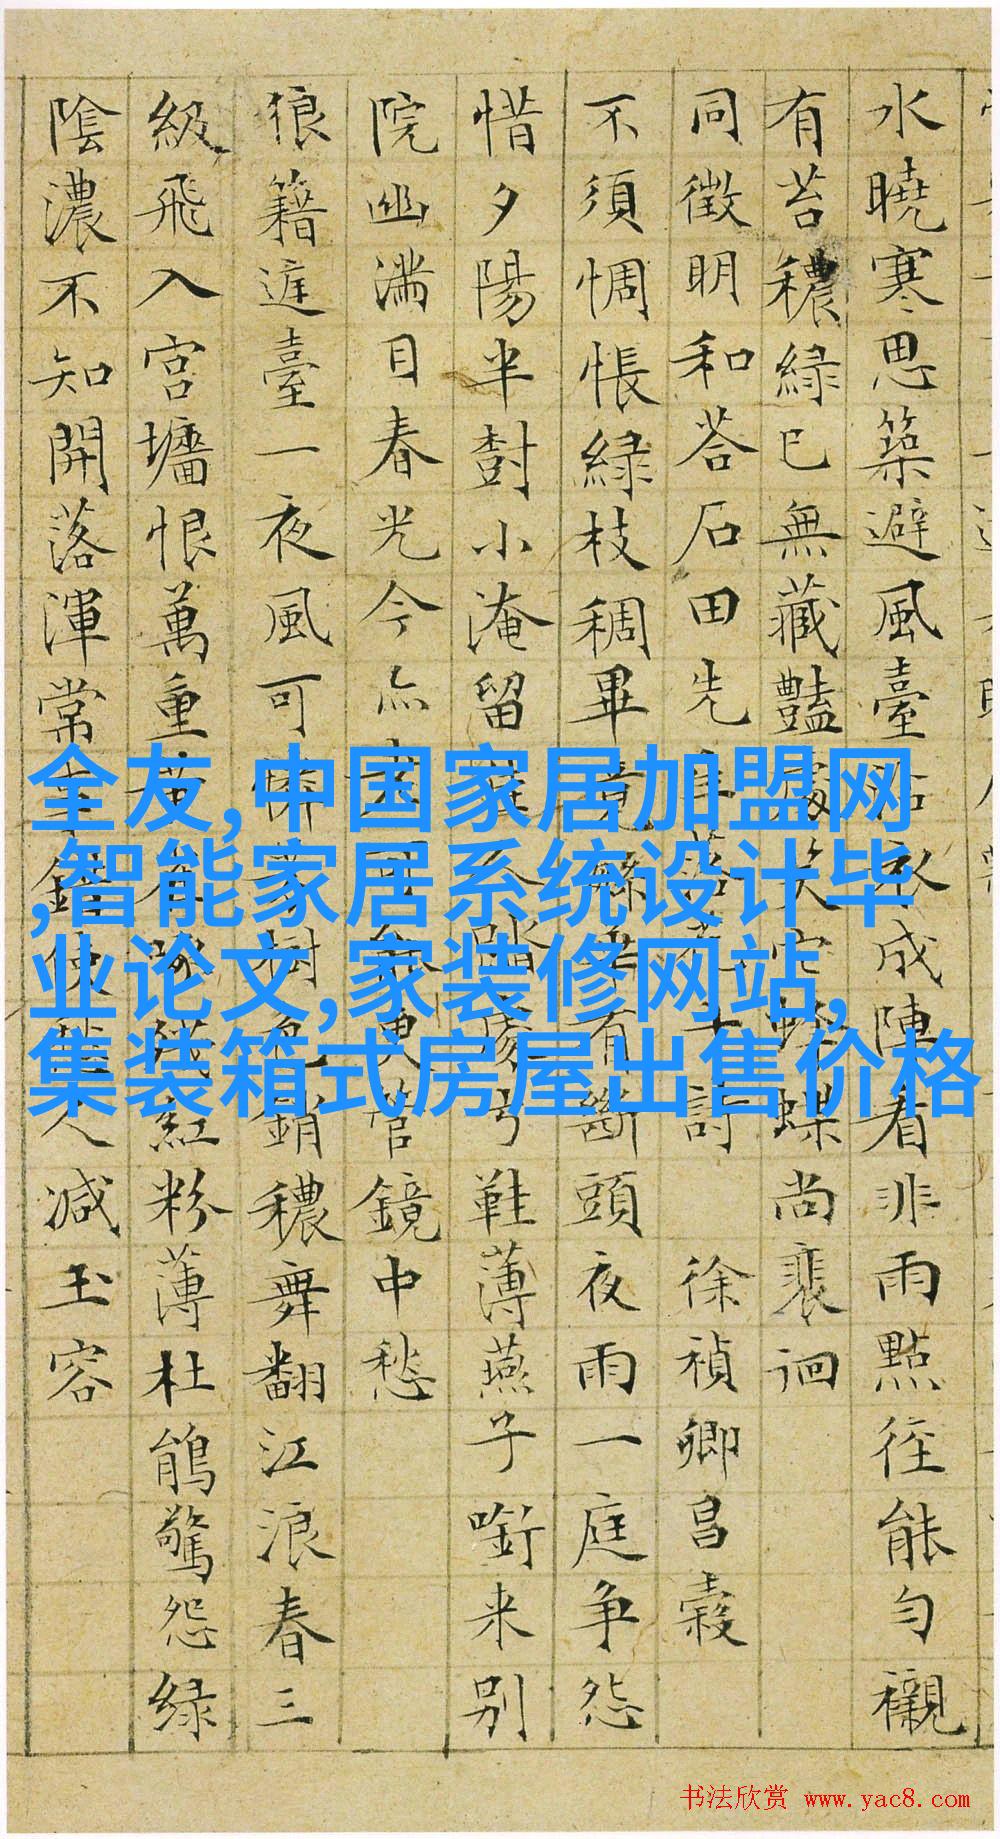 水曉寒思築避風臺沾衣成陣看非雨點徑能勻襯
有苔穠綠已無藏豔處笑它蜂蝶尚裴迴
同徵明和荅石田先生落花十詩 徐禎卿昌穀
不須惆悵綠枝稠畢竟繇華有斷頭夜雨一庭爭怨
惜夕陽半樹小淹留 鞋薄燕子啣來別
院幽滿目春光今 鏡中愁
狼籍遊臺一夜風可憐 樹色銷穠舞翻江浪春三
級飛入宮墻恨萬重 殘紅粉薄杜鵑驚怨綠
陰濃不知開落渾常事錯使 人減玉容
全友,中国家居加盟网
,智能家居系统设计毕
业论文,家装修网站,
集装箱式房屋出售价格
书法欣赏 www.yac8.com